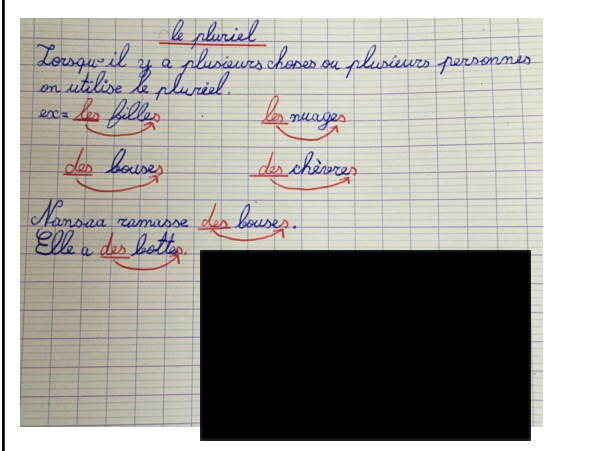 le pluriel
Lorsqu'il y a plusieurs choses ou plusieurs personnes
on utilise le pluriel.
ex= les filles les nuages
des bouses des chèvres
Nansaa ramasse des bouses.
Elle a des bottes.